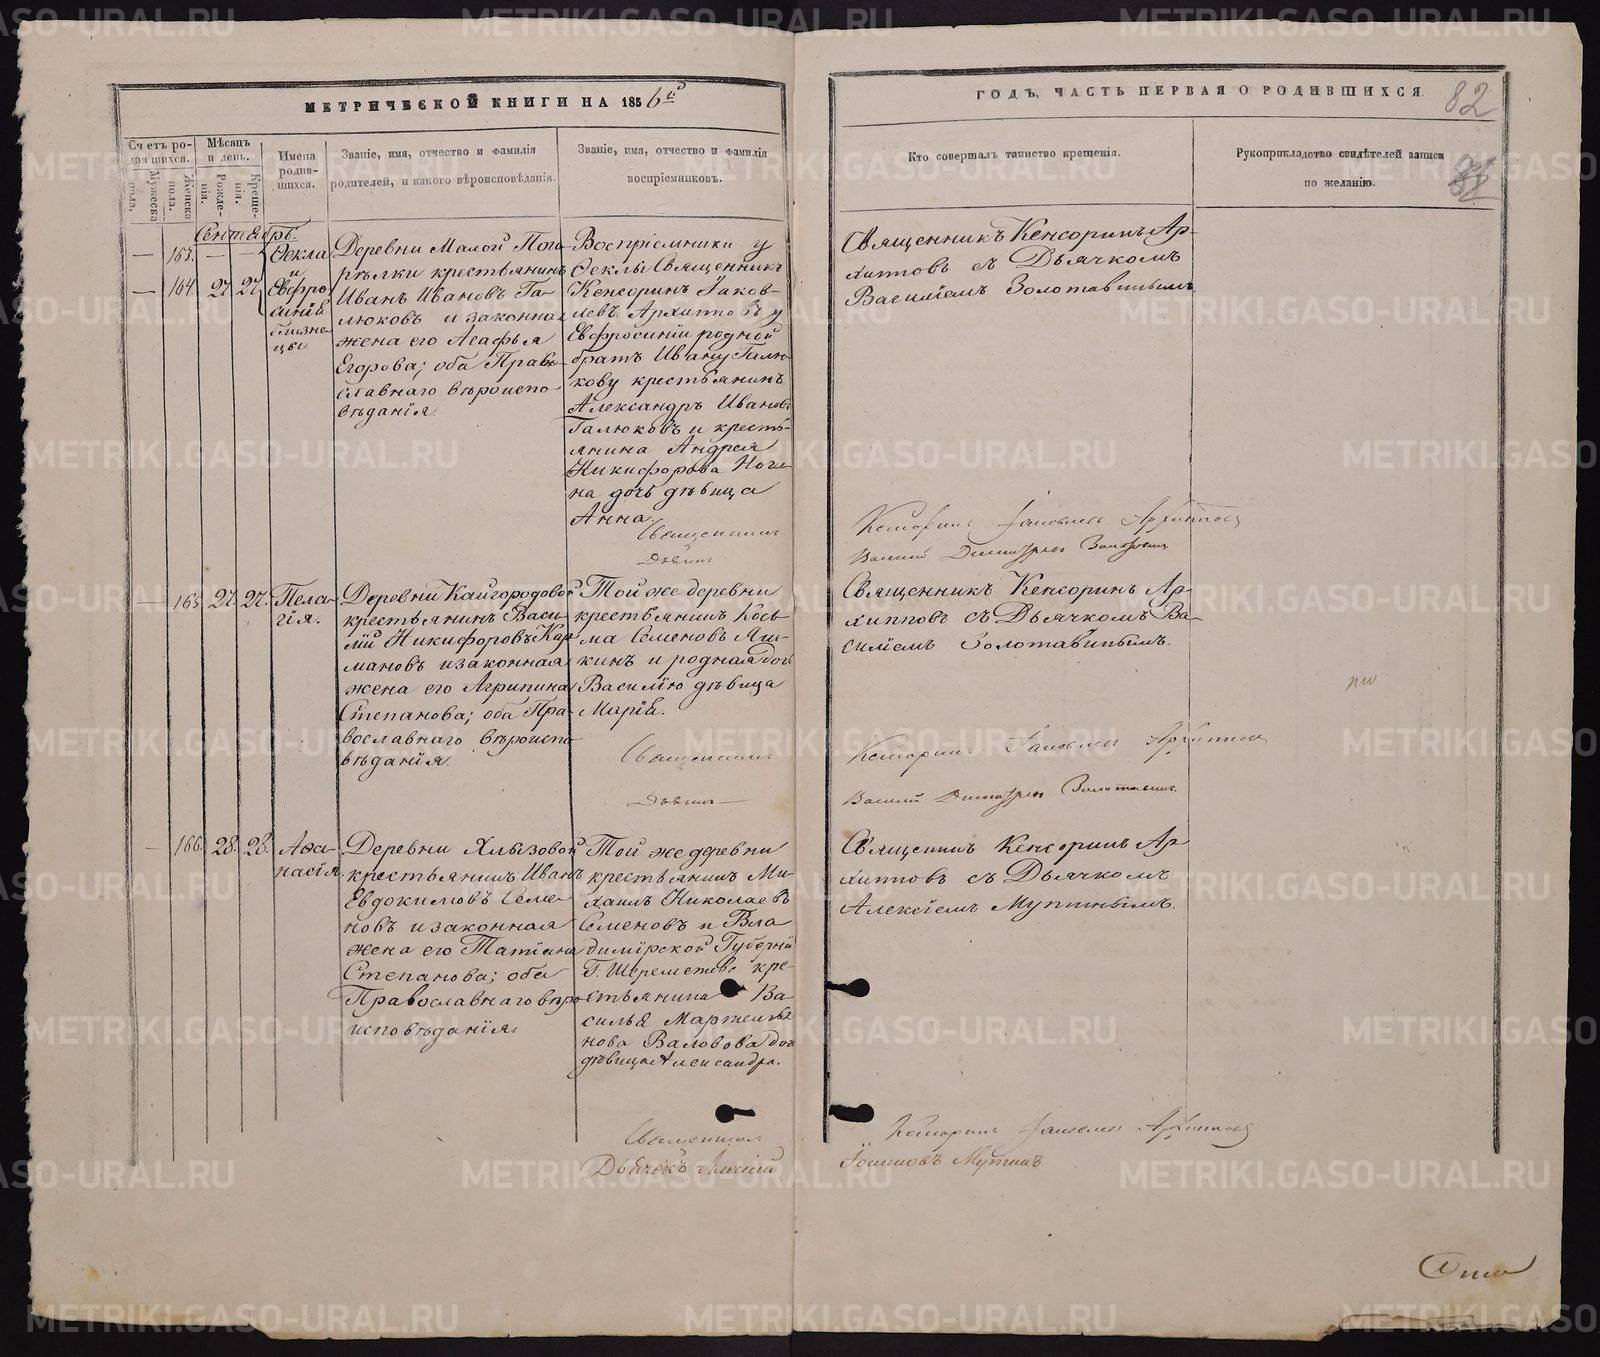 МЕТРИЧЕСКОЙ КНИГИ НА 1856й
ГОДЪ, ЧАСТЬ ПЕРВАЯ О РОДИВШИХСЯ.
82
Счетъ родившихся.
Мужеска пола.
Женска пола.
Мѣсяцъ и день.
Рожденія.
Крещенія.
Имена родившихся.
Званіе, имя, отчество и фамилія
родителей, и какого вѣроисповѣданія.
Званіе, имя, отчество и фамилія
воспріемниковъ.
Кто совершалъ таинство крещенія.
Рукоприкладство свидѣтелей записи
по желанію.
Сентябрь.
— 163. — —
— 164. 27. 27.
Ѳекла
и
Евфро
синія
близне
цы
Деревни Малой Пого
рѣлки крестьянинъ
Иванъ Ивановъ Га-
люковъ и законная
жена его Агафья
Егорова; оба Право
славнаго вѣроиспо
вѣданія.
Воспріемники у
Ѳеклы Священникъ
Кенсоринъ Іаков-
левъ Архипповъ у
Евфросиніи родной
братъ Ивану Галю
кову крестьянинъ
Александръ Ивановъ
Галюковъ и кресть-
янина Андрея
Никифорова
на дочь дѣвица
Анна.
Священникъ
Дьячекъ
Священникъ Кенсоринъ Ар-
хипповъ съ Дьячкомъ
Василіемъ Золотавинымъ
Кенсоринъ Іаковлевъ Архипповъ
Василій Димитріевъ Золотавинъ
— 165. 27. 27.
Пела-
гія.
Деревни Кайгородовой
крестьянинъ Васи-
лій Никифоровъ Кар
мановъ и законная
жена его Агрипина
Степанова; оба Пра-
вославнаго вѣроиспо
вѣданія.
Той же деревни
крестьянинъ Кось
ма Семеновъ Яш-
кинъ и родная дочь
Василію дѣвица
Марія.
Священникъ
Дьячекъ
Священникъ Кенсоринъ Ар-
хипповъ съ Дьячкомъ Ва-
силіемъ Золотавинымъ.
Кенсоринъ Іаковлевъ Архипповъ
Василій Димитріевъ Золотавинъ.
— 166. 28. 28.
Аѳа-
насія.
Деревни Хлызовой
крестьянинъ Иванъ
Евдокимовъ Семе-
новъ и законная
жена его Татіана
Степанова; оба
Православнаго вѣро
исповѣданія.
Той же деревни
крестьянинъ Ми-
хаилъ Николаевъ
Семеновъ и Вла
димірской Губерніи
Г. Шереметева кре-
стьянина Ва
силья
нова Валовова доч
дѣвица Александра.
Священникъ
Дьячекъ Алексій
Священникъ Кенсоринъ Ар
хипповъ съ Дьячкомъ
Алексіемъ Мутинымъ.
Кенсоринъ Іаковлевъ Архипповъ
Іоанновъ Мутинъ
METRIKI.GASO-URAL.RU